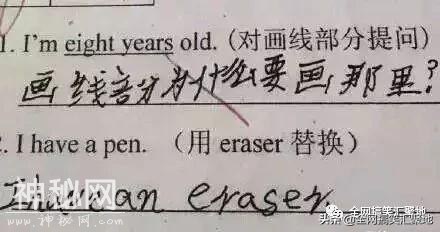 1. I'm eight years old. (对画线部分提问)
画线部分为什么要画那里?
2. I have a pen. (用 eraser 替换)
I have an eraser.
神秘网
www.shenmiw.com
全网搞笑汇聚地
头条 @全网搞笑汇聚地